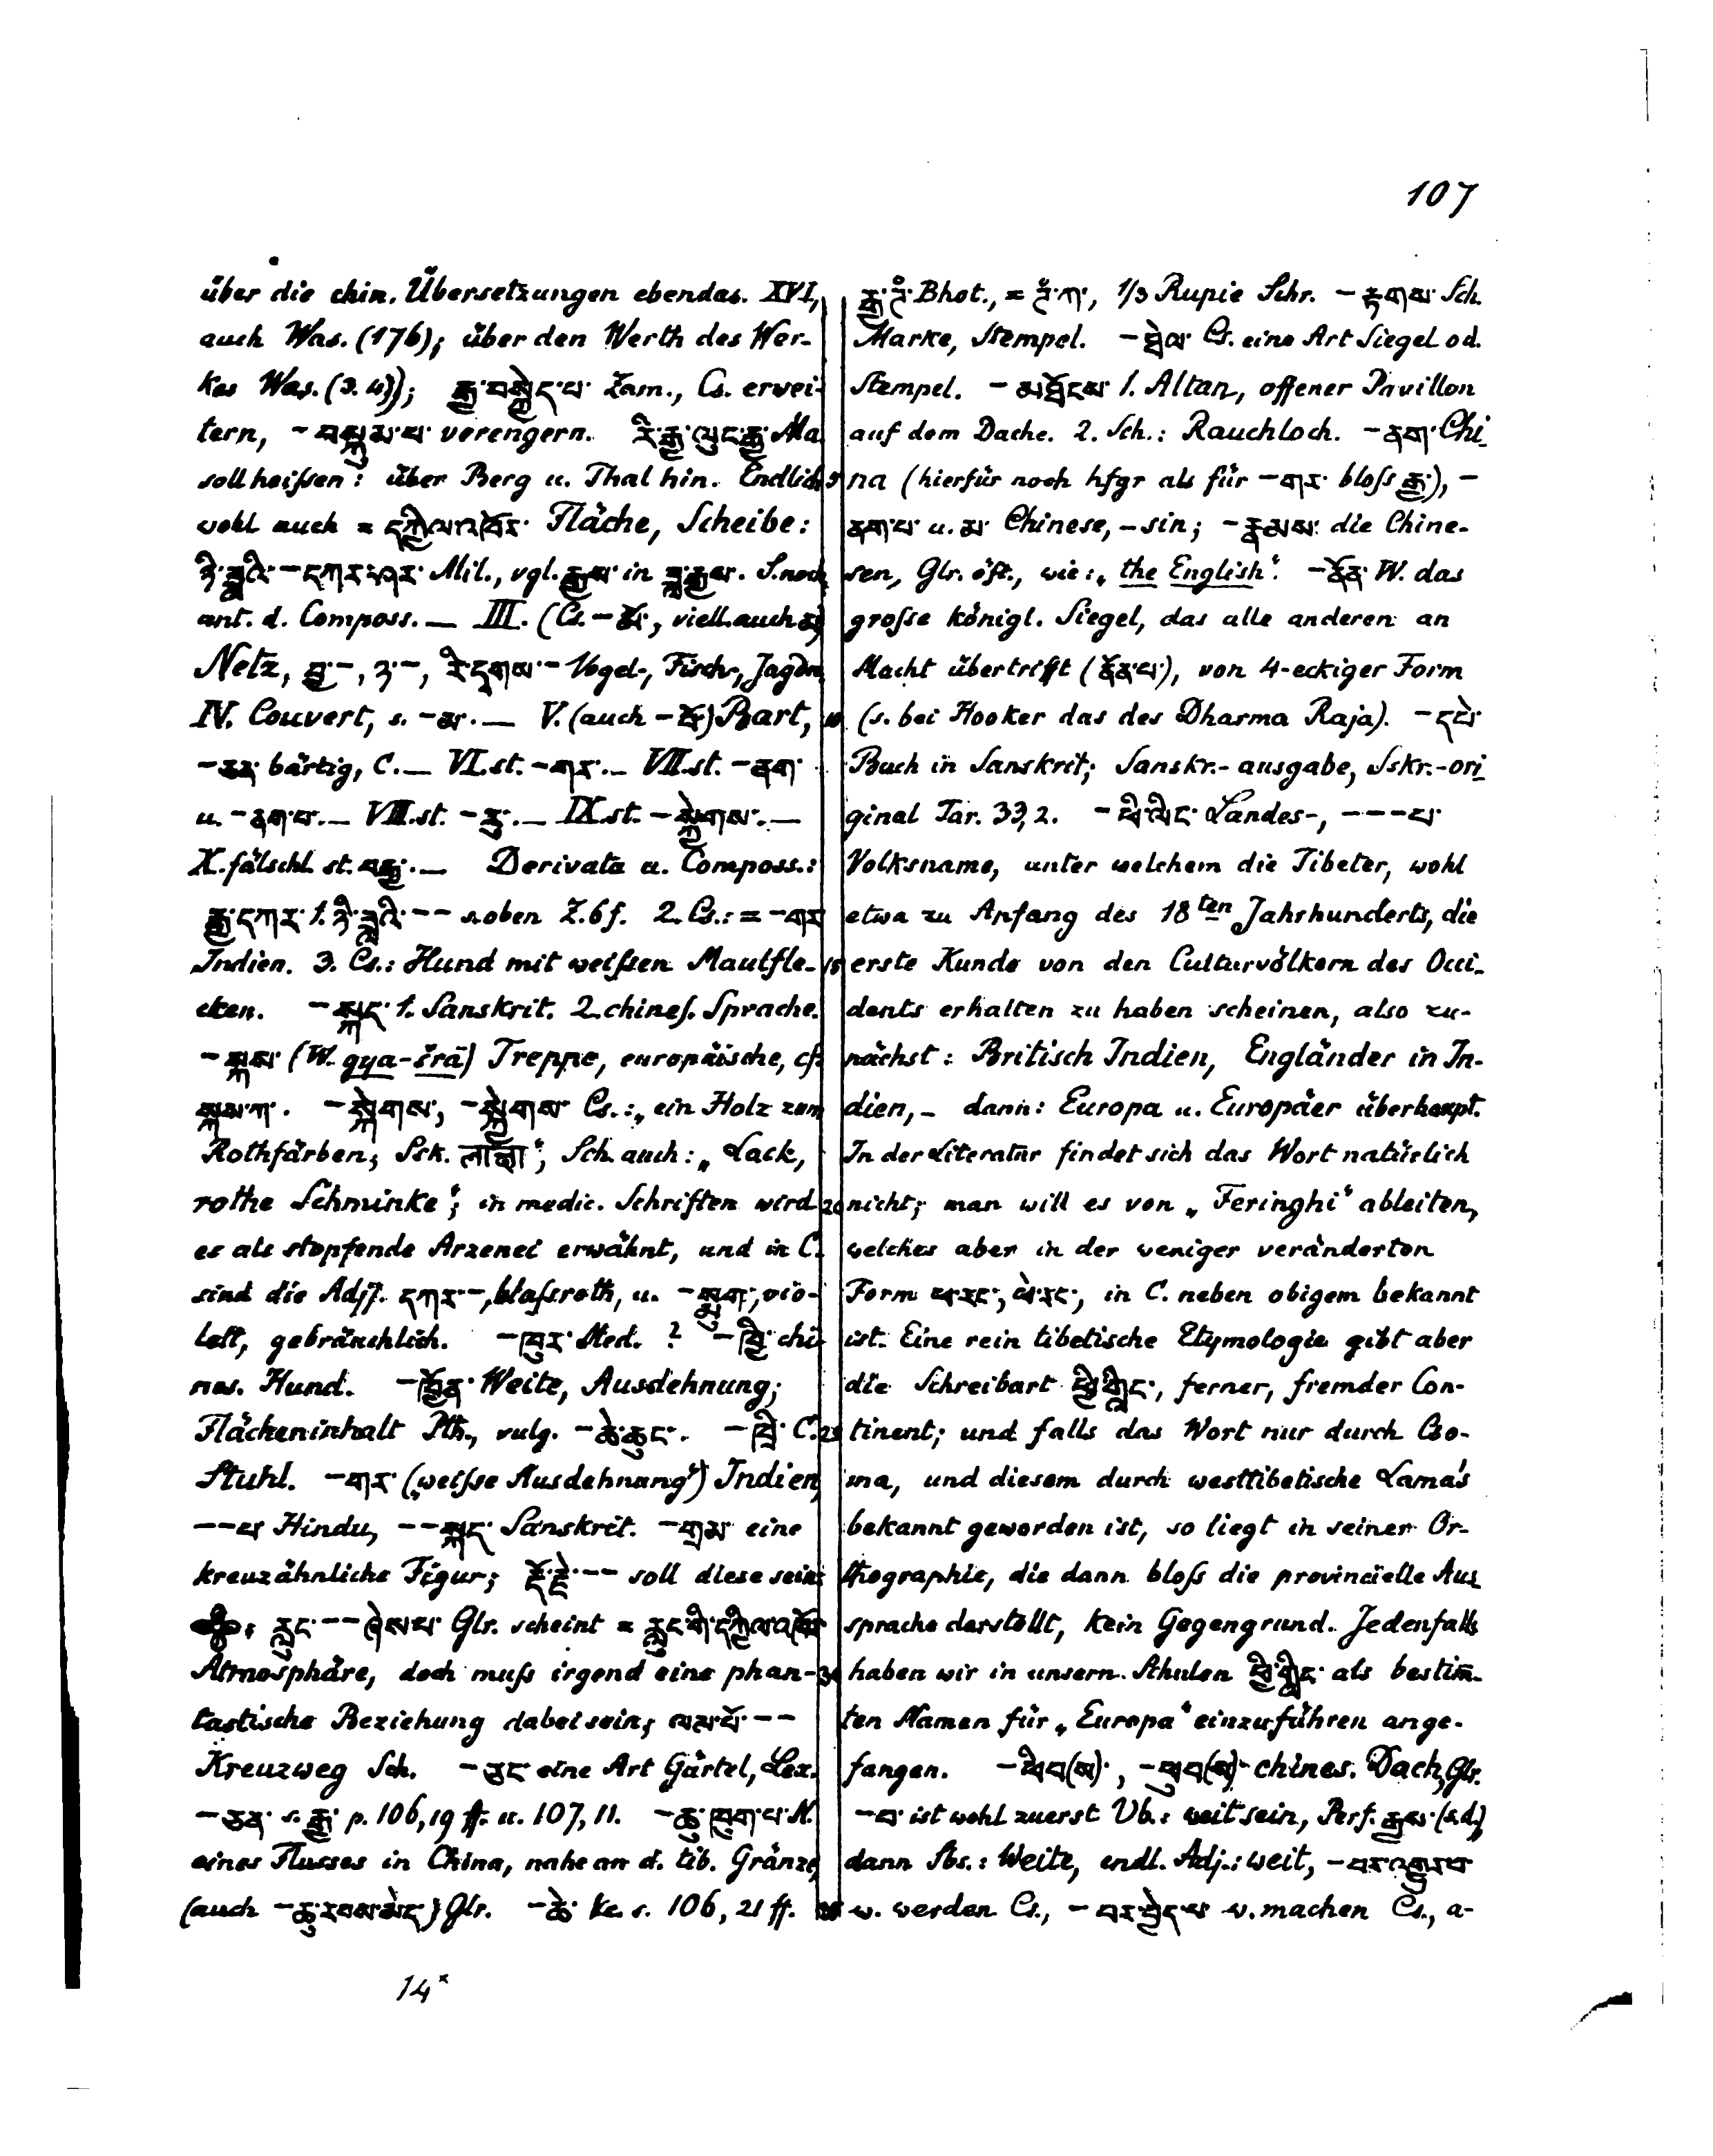 107
über die chin. Übersetzungen ebendas. XVI,
auch Was. (176); über den Werth des Wer-
kes Was. (3. 4)); རྒྱ་བསྐྱེད་པ་ Zam., Cs. erwei-
tern, -བསྐུམ་པ་ verengern. རི་རྒྱ་ལུང་རྒྱ་ Ma.
soll heißen: über Berg u. Thal hin. Endlich
wohl auch = དཀྱིལ་འཁོར་ Fläche, Scheibe:
ཉི་ཟླའི་ -དཀར་ Mil., vgl. རྒྱས་ in ཟླ་རྒྱས་. S. noch
unt. d. Composs. — III. (Cs. -མོ་, viell. auch མ)
Netz, བྱ་-, ཉ་-, རི་དྭགས་- Vogel-, Fisch-, Jagdn.
IV. Couvert, s. -མ་. — V. (auch -བོ་) Bart,
-ཅན་ bärtig, C. — VI. st. -གར་. — VII. st. -ནག་
u. -ནག་པ་. — VIII. st. -རུ་. — IX. st. -སྐྱེགས་. —
X. fälschl. st. བརྒྱ་. — Derivata u. Composs.:
རྒྱ་དཀར་ 1. ཉི་ཟླའི་ -- s. oben Z. 6 f. 2. Cs.: = -གར
Indien. 3. Cs.: Hund mit weißen Maulfle-
cken. -སྐད་ 1. Sanskrit. 2. chines. Sprache.
-སྐས་ (W. gya-šrā) Treppe, europäische, cf.
སྐས་ཀ་. -སྐེགས་, -སྐྱེགས་ Cs.: „ein Holz zum
Rothfärben, Ssk. लाक्षा“, Sch. auch: „Lack,
rothe Schminke“; in medic. Schriften wird
es als stopfende Arzenei erwähnt, und in C.
sind die Adjj. དཀར་-, blaßroth, u. -སྨུག་, vio-
lett, gebräuchlich. -ཁུར་ Med. ? -ཁྱི་ chi-
nes. Hund. -ཁྱོན་ Weite, Ausdehnung;
Flächeninhalt Pth., vulg. -ཆེ་ཆུང་. -ཁྲི་ C.
Stuhl. -གར་ („weiße Ausdehnung“) Indien,
--པ་ Hindu, --སྐད་ Sanskrit. -གྲམ་ eine
kreuzähnliche Figur; རྡོ་རྗེ་-- soll diese sein:
; རླུང་--ཞེས་པ་ Glr. scheint = རླུང་གི་དཀྱིལ་འཁོར
Atmosphäre, doch muß irgend eine phan-
tastische Beziehung dabei sein; ལམ་པོ་--
Kreuzweg Sch. -ཅང་ eine Art Gürtel, Lex.
-ཅན་ s. རྒྱ་ p. 106, 19 ff. u. 107, 11. -ཆུ་ཁྲག་པ་ N.
eines Flusses in China, nahe an d. tib. Gränze,
(auch -ཆུ་རབས་མེད་) Glr. -ཆེ་ kc. s. 106, 21 ff.
14*
རྒྱ་ཊཾ་ Bhot., = ཊཾ་ཀ་, 1/3 Rupie Schr. -རྟགས་ Sch.
Marke, Stempel. -ཐེལ་ Cs. eine Art Siegel od.
Stempel. -མཐོངས་ 1. Altan, offener Pavillon
auf dem Dache. 2. Sch.: Rauchloch. -ནག་ Chi-
na (hierfür noch hfgr als für -གར་ bloß རྒྱ་), -
ནག་པ་ u. མ་ Chinese, -sin; -རྣམས་ die Chine-
sen, Glr. öft., wie: „the English“. -ནོན་ W. das
große königl. Siegel, das alle anderen an
Macht übertrifft (ནོན་པ་), von 4-eckiger Form
(s. bei Hooker das des Dharma Raja). -དཔེ་
Buch in Sanskrit; Sanskr.-ausgabe, Sskr.-ori-
ginal Tar. 33, 2. -ཕི་ལིང་ Landes-, ---པ་
Volksname, unter welchem die Tibeter, wohl
etwa zu Anfang des 18ten Jahrhunderts, die
erste Kunde von den Culturvölkern des Occi-
dents erhalten zu haben scheinen, also zu-
nächst: Britisch Indien, Engländer in In-
dien, - dann: Europa u. Europäer überhaupt.
In der Literatur findet sich das Wort natürlich
nicht; man will es von „Feringhi“ ableiten,
welches aber in der weniger veränderten
Form ཕ་རང་, ཕེ་རང་, in C. neben obigem bekannt
ist. Eine rein tibetische Etymologie gibt aber
die Schreibart ཕྱི་གླིང་, ferner, fremder Con-
tinent; und falls das Wort nur durch Cso-
ma, und diesem durch westtibetische Lama's
bekannt geworden ist, so liegt in seiner Or-
thographie, die dann bloß die provincielle Aus-
sprache darstellt, kein Gegengrund. Jedenfalls
haben wir in unsern Schulen ཕྱི་གླིང་ als bestim̄-
ten Namen für „Europa“ einzuführen ange-
fangen. -ཕིབ(ས)་, -ཕུབ(ས)་ chines. Dach, Glr.
-བ་ ist wohl zuerst Vb.: weit sein, Perf. རྒྱས་ (s.d.)
dann Sbs.: Weite, endl. Adj.: weit, -བར་འགྱུར་བ
w. werden Cs., -བར་བྱེད་པ་ w. machen Cs., a-